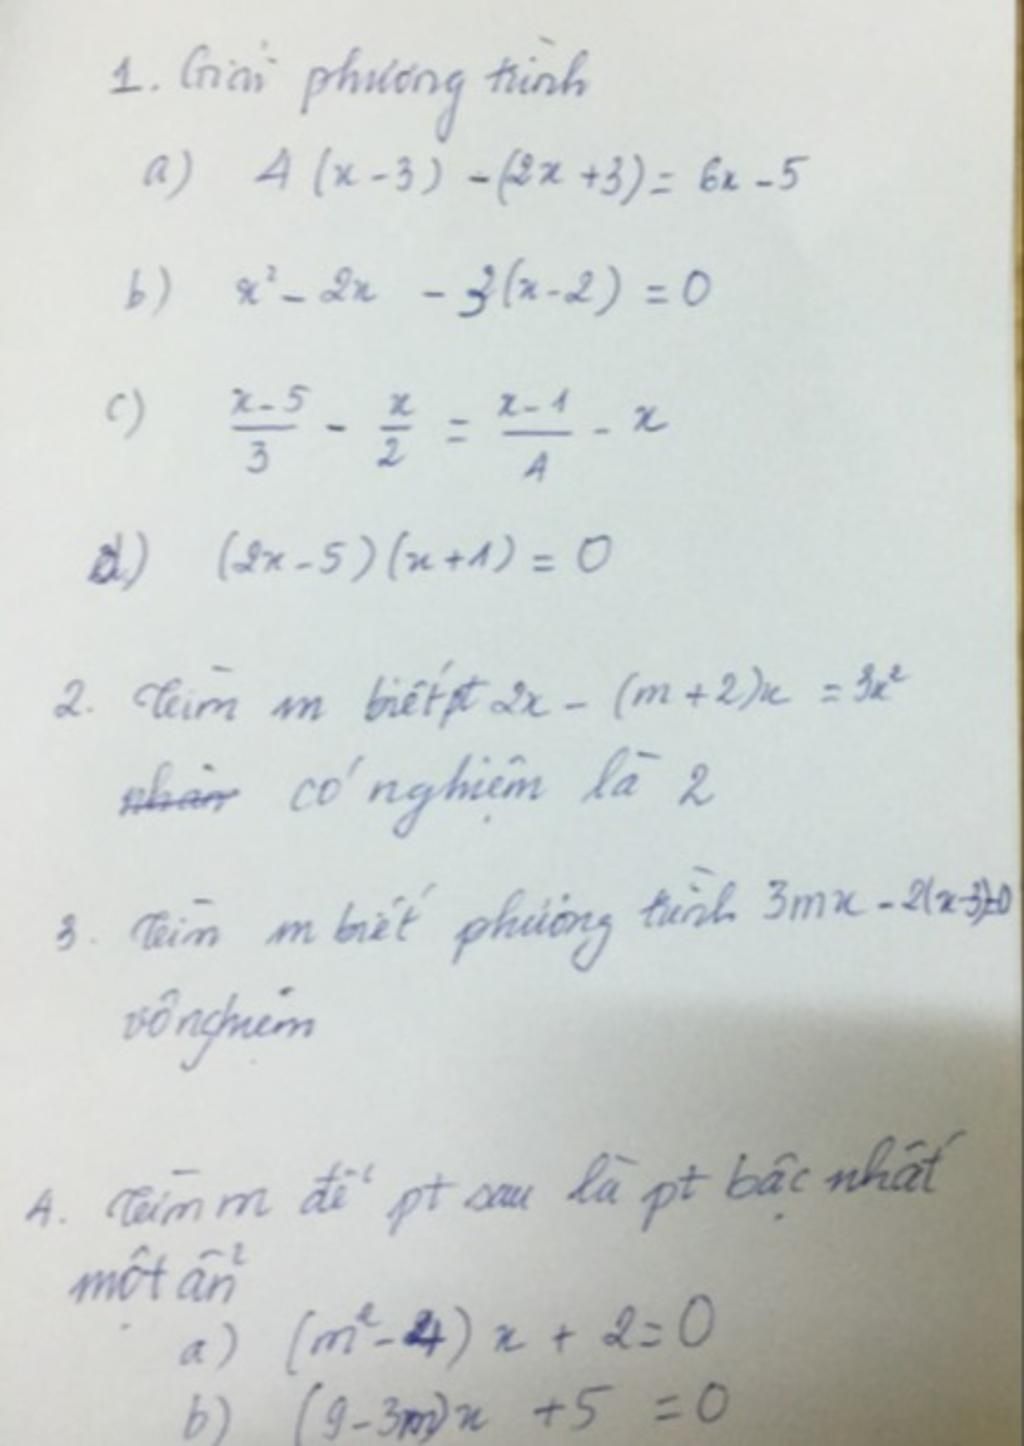 1. Giải phương trình
a) 4(x-3) - (2x+3) = 6x-5
b) x² - 2x - 3(x-2) = 0
c) \frac{x-5}{3} - \frac{x}{2} = \frac{x-1}{4} - x
d) (2x-5)(x+1) = 0
2. Tìm m biết pt 2x - (m+2)x = 3x²
có nghiệm là 2
3. Tìm m biết phương trình 3mx - 2(x-3)=0
vô nghiệm
4. Tìm m để pt sau là pt bậc nhất
một ẩn
a) (m²-4)x + 2 = 0
b) (9-3m)x + 5 = 0